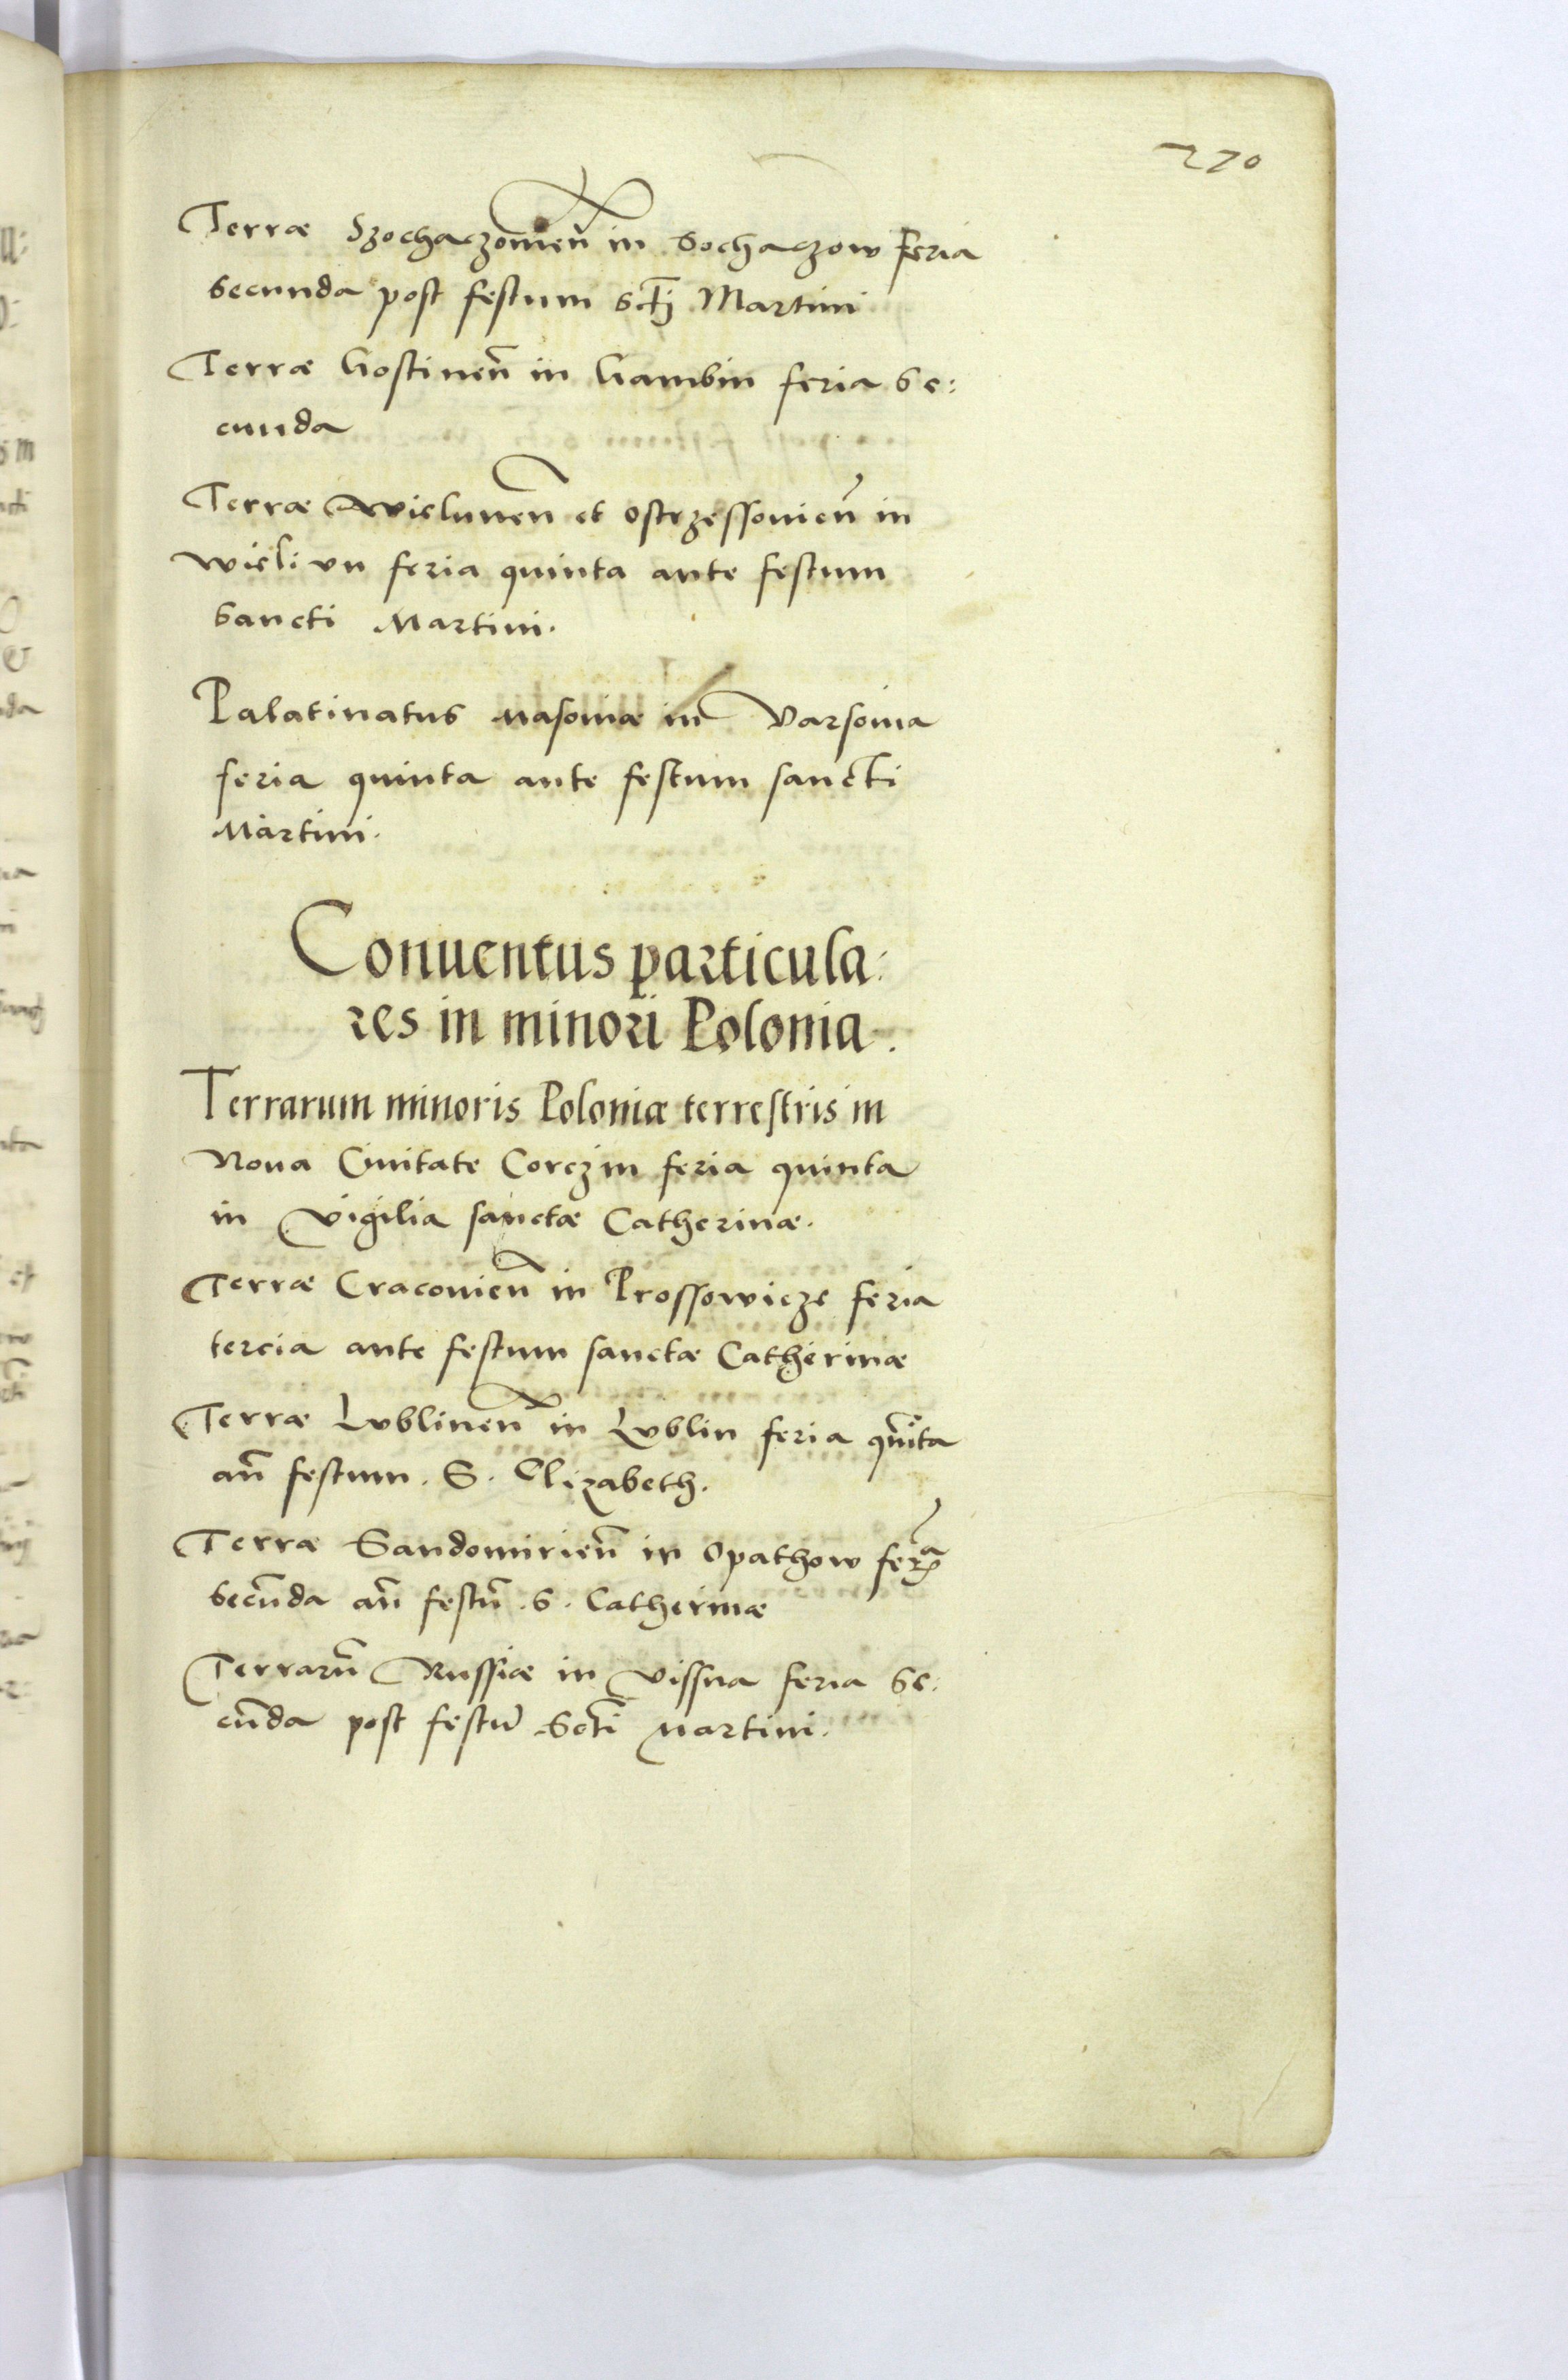 220
Terræ Szochaczouien̄ in Sochaczow Feria
secunda post festum sctj Martini
Terræ Gostinen̄ in Gambin feria se:
cunda
Terræ Wielunen̄ et Ostrzessouien̄ in
Wieliun feria quinta ante festum
Sancti Martini.
Palatinatus Masouiæ in Varsouia
feria quinta ante festum sancti
Martini.
Conuentus particula:
res in minori Polonia.
Terrarum minoris Poloniæ terrestris in
Noua Ciuitate Corczin feria quinta
in Vigilia sanctæ Catherinæ.
Terræ Cracouien̄ in Prossowicze feria
tercia ante festum sanctæ Catherinæ
Terræ Lublinen̄ in Lublin feria qūita
an̄ festum. S. Elizabeth.
Terræ Sandomirien̄ in Opathow feria
secūda an̄ festū. S. Catherinæ
Terrarū Russiæ in Vissna feria se:
cūda post festū Scti Martini.